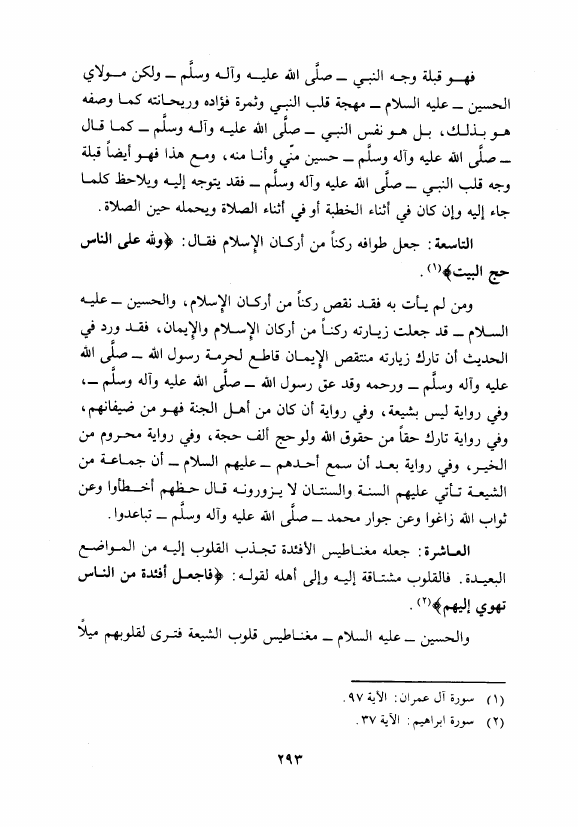 فهـو قبلة وجـه النبـي ــ صلَّى الله عليـه وآلـه وسلَّم ــ ولكن مـولاي
الحسين ــ عليه السلام ــ مهجة قلب النبـي وثمرة فؤاده وريحانته كمـا وصفه
هو بـذلـك، بـل هـو نفس النبـي ــ صلَّى الله عليـه وآلـه وسلَّم ــ كمـا قـال
ــ صلَّى الله عليه وآله وسلَّم ــ حسين منّي وأنـا منه، ومـع هذا فهـو أيضاً قبلة
وجه قلب النبـي ــ صلَّى الله عليه وآله وسلَّم ــ فقد يتوجه إليـه ويلاحظ كلمـا
جاء إليه وإن كان في أثناء الخطبة أو في أثناء الصلاة ويحمله حين الصلاة.
التاسعة: جعل طوافه ركناً من أركـان الإسلام فقـال: ﴿ولله على الناس
حج البيت﴾(١).
ومن لم يـأت به فقـد نقص ركنـاً من أركـان الإسلام، والحسين ــ عليـه
السـلام ــ قد جعلت زيـارته ركنـاً من أركان الإسـلام والإيمان، فقـد ورد في
الحديث أن تارك زيارته منتقص الإيمـان قاطـع لحرمـة رسول الله ــ صلَّى الله
عليه وآله وسلَّم ــ ورحمه وقد عق رسول الله ــ صلَّى الله عليه وآله وسلَّم ــ،
وفي رواية ليس بشيعة، وفي رواية أن كان من أهـل الجنة فهـو من ضيفانهم،
وفي رواية تارك حقاً من حقوق الله ولو حج ألف حجة، وفي رواية محـروم من
الخير، وفي رواية بعـد أن سمع أحـدهم ــ عليهم السلام ــ أن جمـاعة من
الشيعـة تـأتي عليهم السنـة والسنتـان لا يـزورونـه قـال حـظهم أخـطأوا وعن
ثواب الله زاغوا وعن جوار محمد ــ صلَّى الله عليه وآله وسلَّم ــ تباعدوا.
العـاشرة: جعله مغنـاطيس الأفئدة تجـذب القلوب إليـه من المـواضـع
البعيـدة. فالقلوب مشتـاقة إليـه وإلى أهله لقولـه: ﴿فاجعـل أفئدة من النـاس
تهوي إليهم﴾(٢).
والحسين ــ عليه السلام ــ مغنـاطيس قلوب الشيعة فتـرى لقلوبهم ميلًا
(١) سورة آل عمران: الآية ٩٧.
(٢) سورة ابراهيم: الآية ٣٧.
٢٩٣